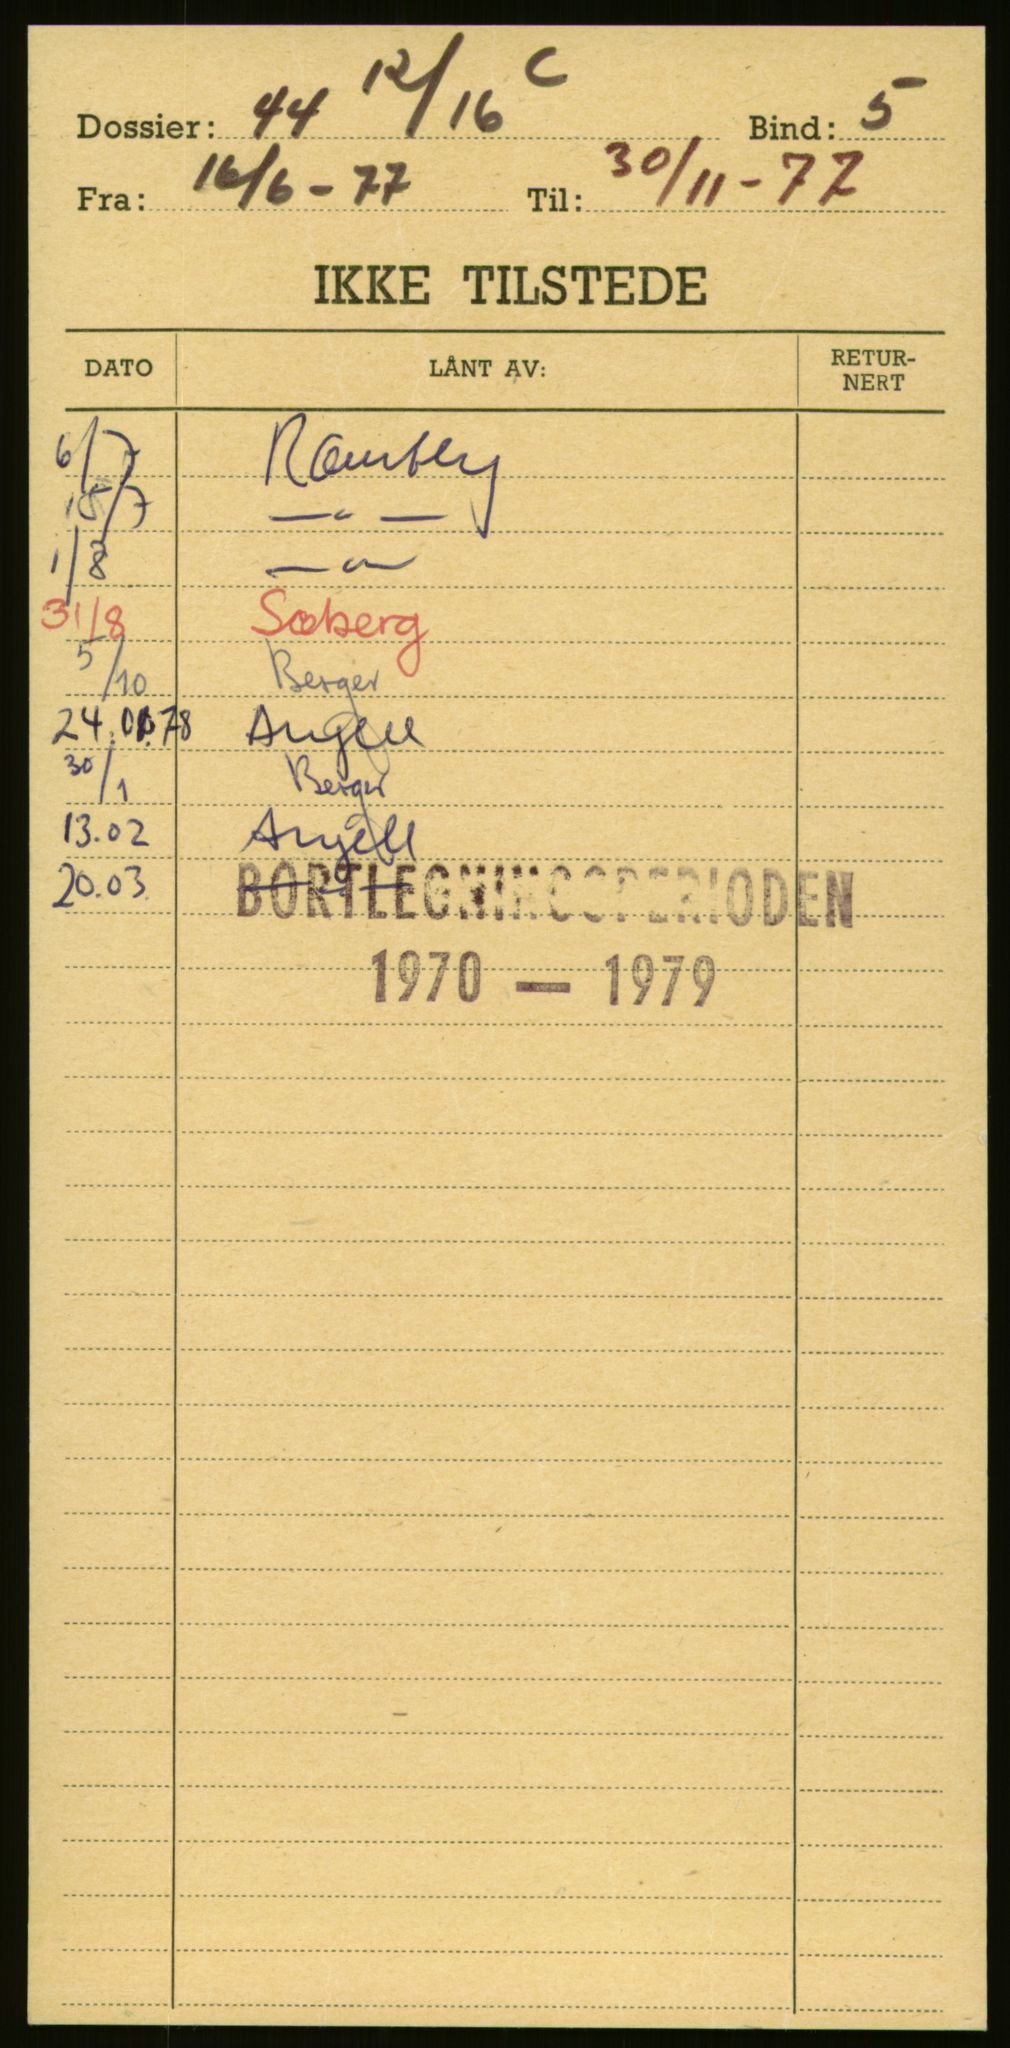 Dossier: 44 12/16 C Bind: 5
Fra: 16/6 - 77 Til: 30/11 - 77
IKKE TILSTEDE
DATO LÅNT AV: RETUR-
NERT
6/7 Ramberg
15/7 — " —
1/8 — " —
31/8 Søberg
5/10 Berger
24.01.78 Angell
30/1 Berger
13.02 Angell
20.03 — " —
BORTLEGNINGSPERIODEN
1970 — 1979